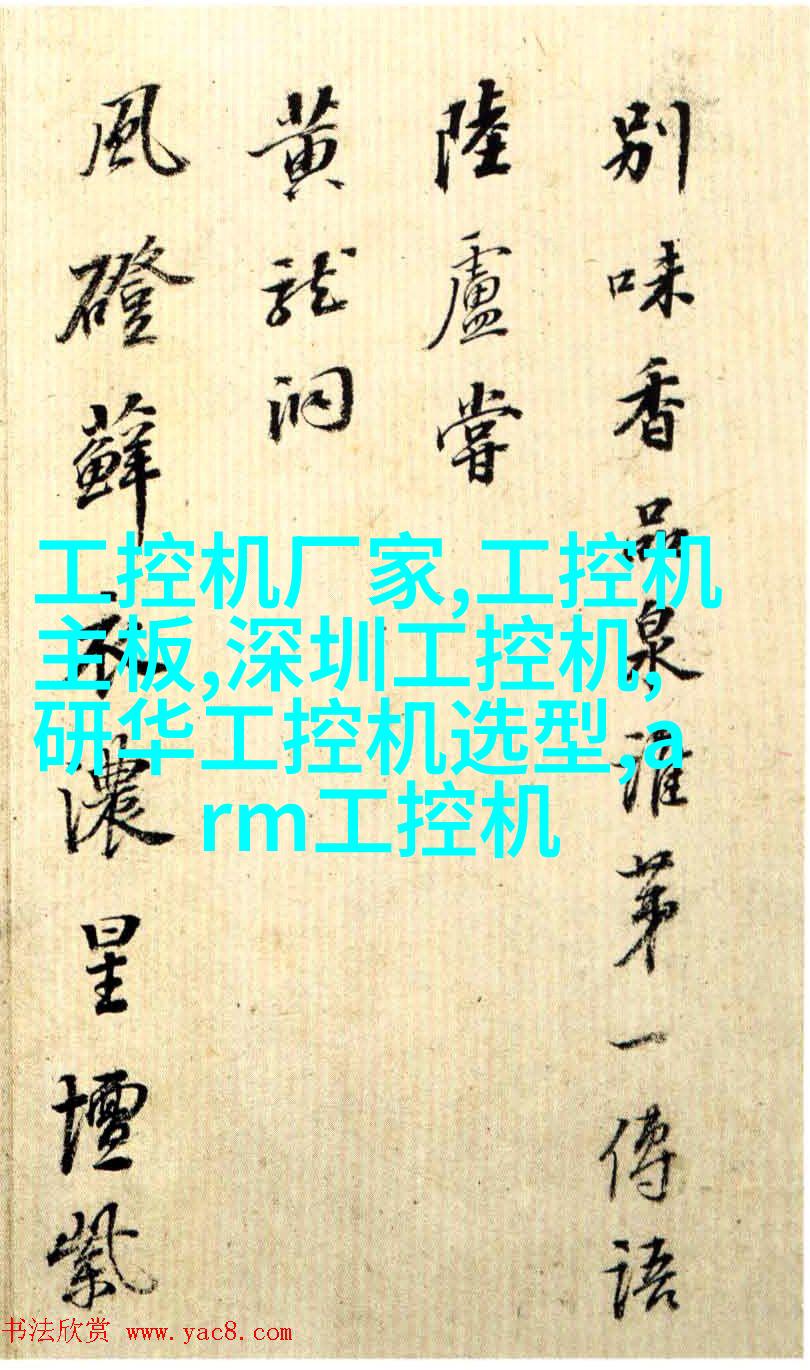 别味香品泉谁第一传语
陸盧嘗
黄龍洞
風磴蘚衣濃星壇紫
工控机厂家,工控机
主板,深圳工控机,
研华工控机选型,a
rm工控机
书法欣赏 www.yac8.com